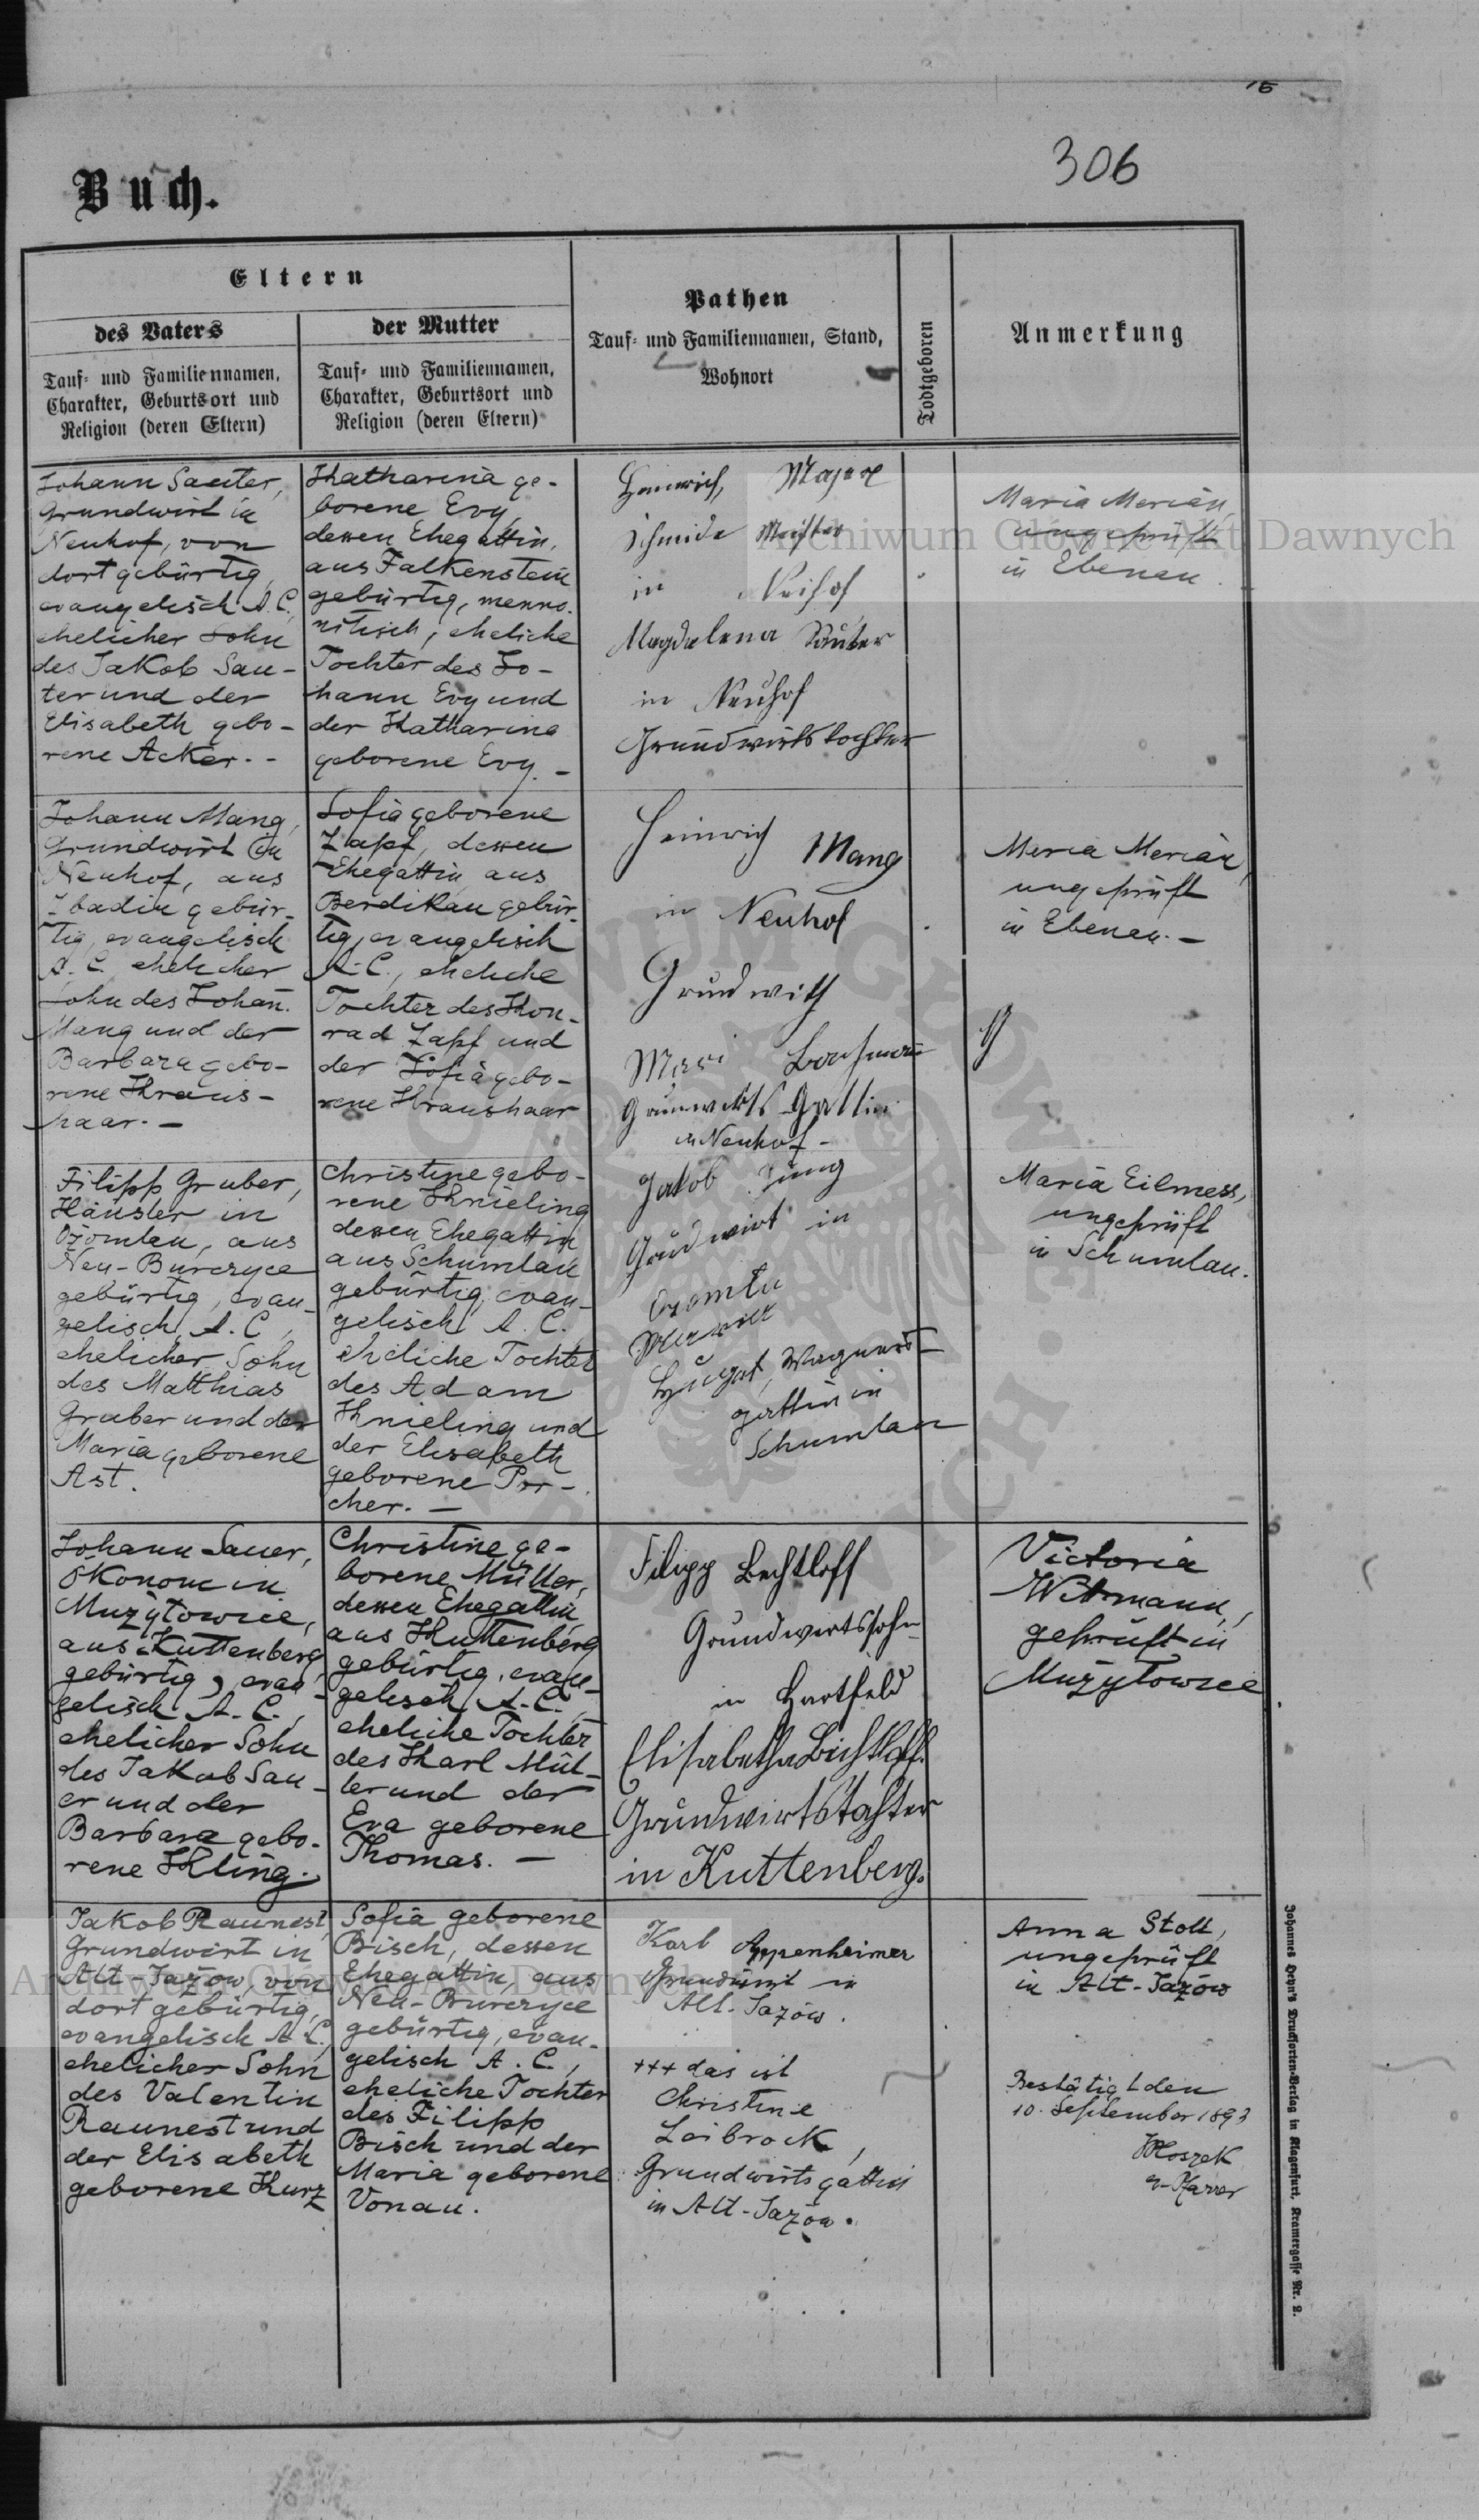 306
Buch.
Eltern
des Vaters
Tauf- und Familiennamen,
Charakter, Geburtsort und
Religion (deren Eltern)
der Mutter
Tauf- und Familiennamen,
Charakter, Geburtsort und
Religion (deren Eltern)
Pathen
Tauf- und Familiennamen, Stand,
Wohnort
Todtgeboren
Anmerkung
Johann Sauter,
Grundwirt in
Neuhof, von
dort gebürtig,
evangelisch A. C.
ehelicher Sohn
des Jakob Sau-
ter und der
Elisabeth gebo-
rene Acker. -
Katharina ge-
borene Ewy,
dessen Ehegattin,
aus Falkenstein
gebürtig, menno-
nitisch, eheliche
Tochter des Jo-
hann Ewy und
der Katharina
geborene Ewy. -
Heinrich, Majer
Schmide Meister
in Neihof
Magdalena Sauter
in Neuhof
Grundwirtstochter
Maria Merian,
ungeprüft
in Ebenau.
Johann Mang,
Grundwirt in
Neuhof, aus
gebür-
tig, evangelisch
A. C. ehelicher
Sohn des Johann
Mang und der
Barbara gebo-
rene Kraus-
haar. -
Sofia geborene
Zapf, dessen
Ehegattin aus
Berdikau gebür-
tig, evangelisch
A. C., eheliche
Tochter des Kon-
rad Zapf und
der Sofia gebo-
rene Kraushaar
Heinrich Mang
in Neuhof
Grundwith
Mari
Gattin
in Neuhof -
Meria Merian,
ungeprüft
in Ebenau. -
Filipp Gruber,
Häusler in
Ożomlau, aus
Neu-Burczyce
gebürtig, evan-
gelisch A. C.,
ehelicher Sohn
des Matthias
Gruber und der
Maria geborene
Ast.
Christine gebo-
rene Knieling
dessen Ehegattin
aus Schumlau
gebürtig, evan-
gelisch A. C.
eheliche Tochter
des Adam
Knieling und
der Elisabeth
geborene Por-
cher. -
Jakob Jung
Grudwirt in
Ozomla
Wagners-
gattin in
Schumlau
Maria Eilmess,
ungeprüft
in Schumlau.
Johann Sauer,
Ökonom in
Mużyłowice,
aus Kuttenberg
gebürtig, evan-
gelisch A. C.,
ehelicher Sohn
des Jakob Sau-
er und der
Barbara gebo-
rene Kling.
Christine ge-
borene Müller,
dessen Ehegattin,
aus Kuttenberg
gebürtig, evan-
gelisch A. C.,
eheliche Tochter
des Karl Mül-
ler und der
Eva geborene
Thomas. -
Filipp Bechtloff
Grundwirtssohn
in Hartfeld
Elisabetha Bechtloff.
Grundwirtstochter
in Kuttenberg.
Victoria
Wittmann,
geprüft in
Mużyłowice
Jakob Raunest,
Grundwirt in
Alt-Jażów, von
dort gebürtig,
evangelisch A. C.,
ehelicher Sohn
des Valentin
Raunest und
der Elisabeth
geborene Kurz
Sofia geborene
Bisch, dessen
Ehegattin, aus
Neu-Burczyce
gebürtig, evan-
gelisch A. C.,
eheliche Tochter
des Filipp
Bisch und der
Maria geborene
Vonau.
Karl Appenheimer
Grundwirt in
Alt-Jazów.
+++ das ist
Christine
Loibrock,
Grundwirtsgattin
in Alt-Jażów.
Anna Stoll,
ungeprüft
in Alt-Jażów
Bestätigt den
10. September 1893
Pfarrer
Johannes Leon's Drucksorten-Verlag in Klagenfurt, Kramergasse Nr. 2.
Archiwum Główne Akt Dawnych
Archiwum Główne Akt Dawnych